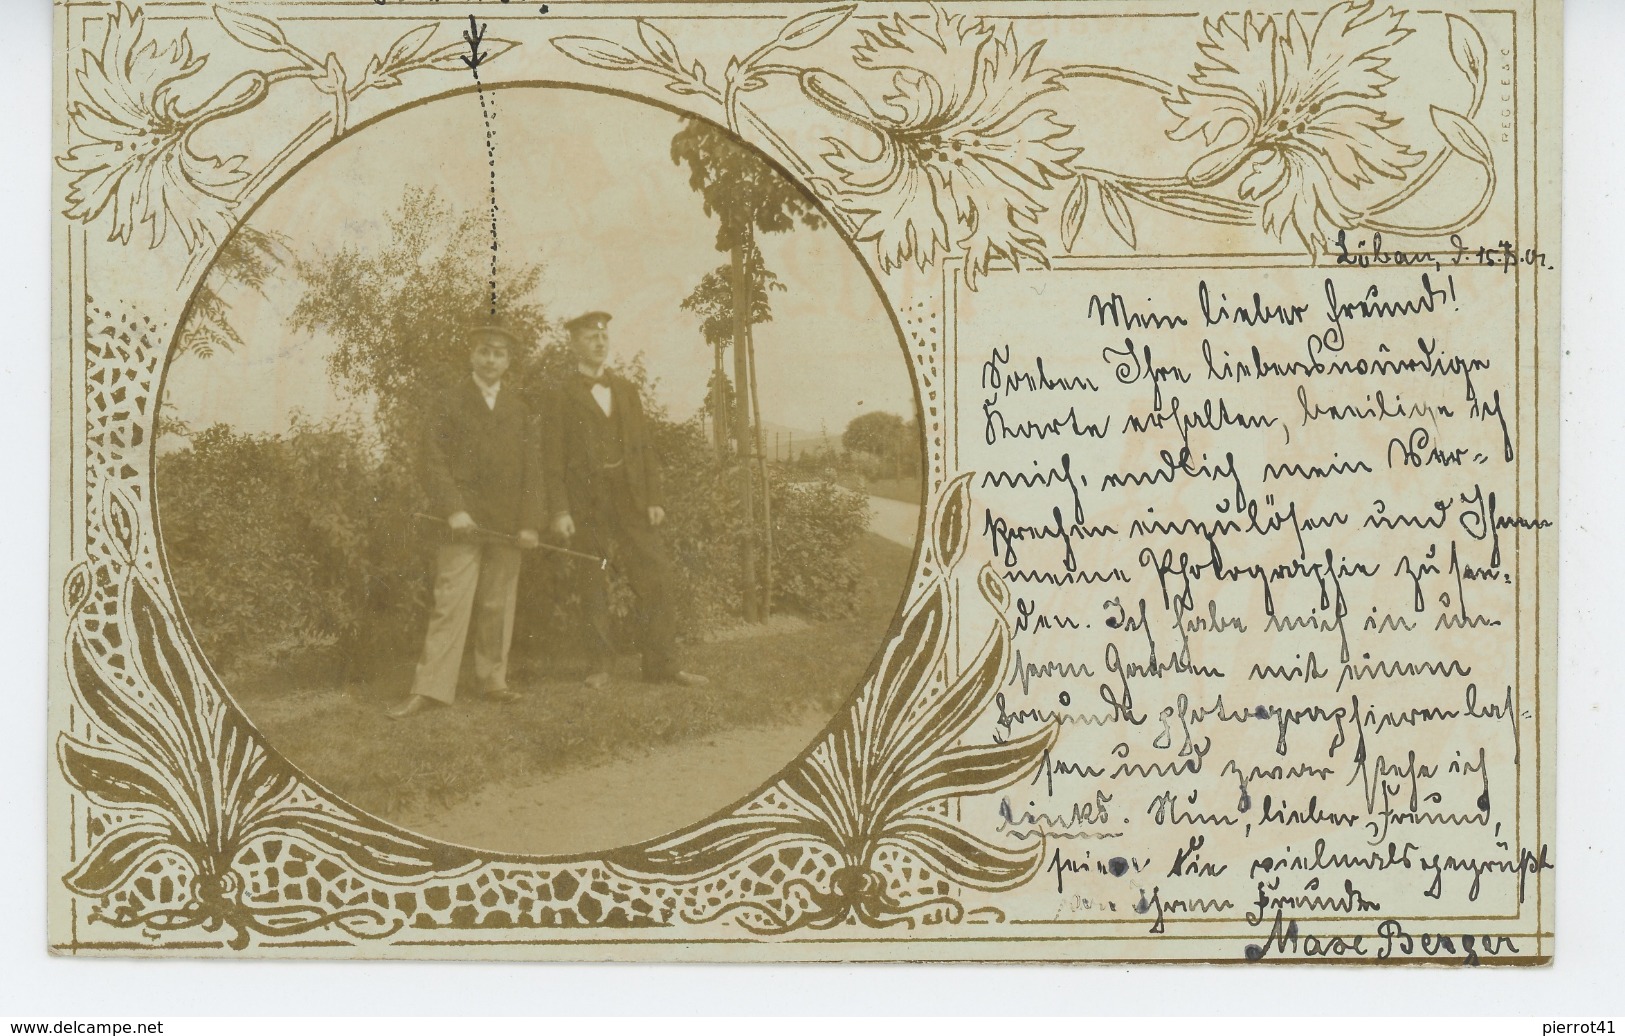 REGCE & C
Löbau, d. 15. 5. 01.
Mein lieber Freund!
Soeben Ihre liebenswürdige
Karte erhalten, beeilige ich
mich, endlich mein Ver=
sprechen einzulösen und Ihnen
meine Photographie zu sen=
den. Ich habe mich in un=
serm Garten mit einem
Freunde photographieren las=
sen und zwar stehe ich
links. Nun, lieber Freund,
seien Sie vielmals gegrüßt
von Ihrem Freunde
Max Berger
www.delcampe.net
pierrot41